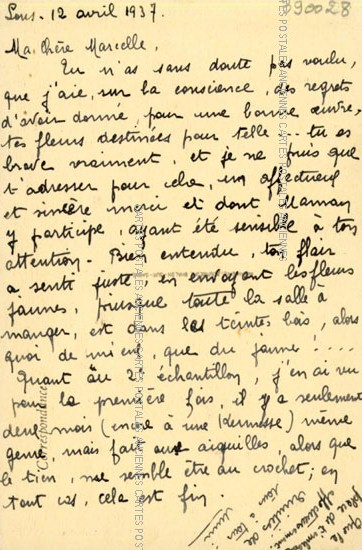 090028
Lons. 12 avril 1937.
Ma chère Marcelle,
Tu n'as sans doute pas voulu,
que j'aie, sur la conscience, des regrets
d'avoir donné, pour une bonne œuvre,
tes fleurs destinées pour telle... tu es
brave vraiment, et je ne puis que
t'adresser pour cela, un affectueux
et sincère merci et dont Maman
y participe, ayant été sensible à ton
attention. Bien entendu, ton flair
a senti juste, en envoyant les fleurs
jaunes, puisque toute la salle à
manger, est dans les teintes bois, alors
quoi de mieux, que du jaune.....
Quant au 2e échantillon, j'en ai vu
pour la première fois, il y a seulement
deux mois (encore à une Kermesse) même
genre, mais fait aux aiguilles, alors que
le tien, me semble être au crochet; en
tout cas, cela est fin.
Correspondance
CARTES POSTALES ANCIENNES